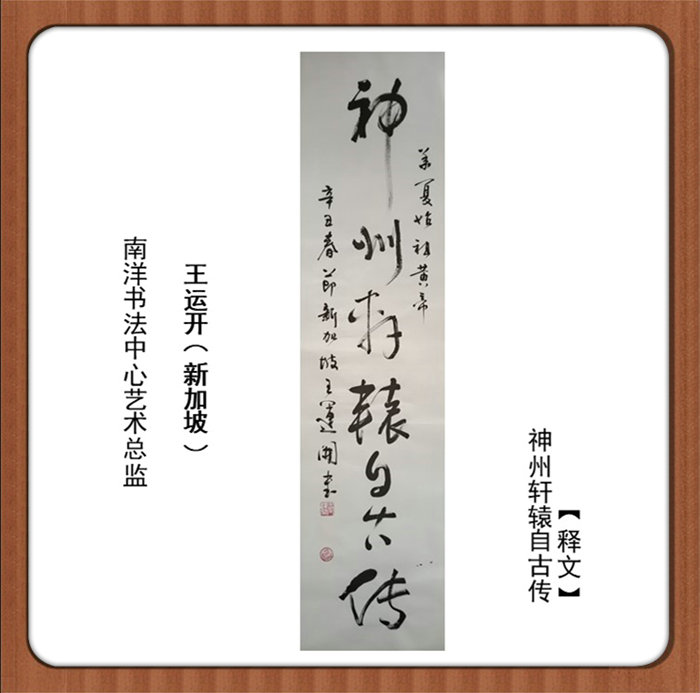 【释文】
神州轩辕自古传
华夏始祖黄帝
神州轩辕自古传
辛丑春节新加坡王運開书
王运开（新加坡）
南洋书法中心艺术总监